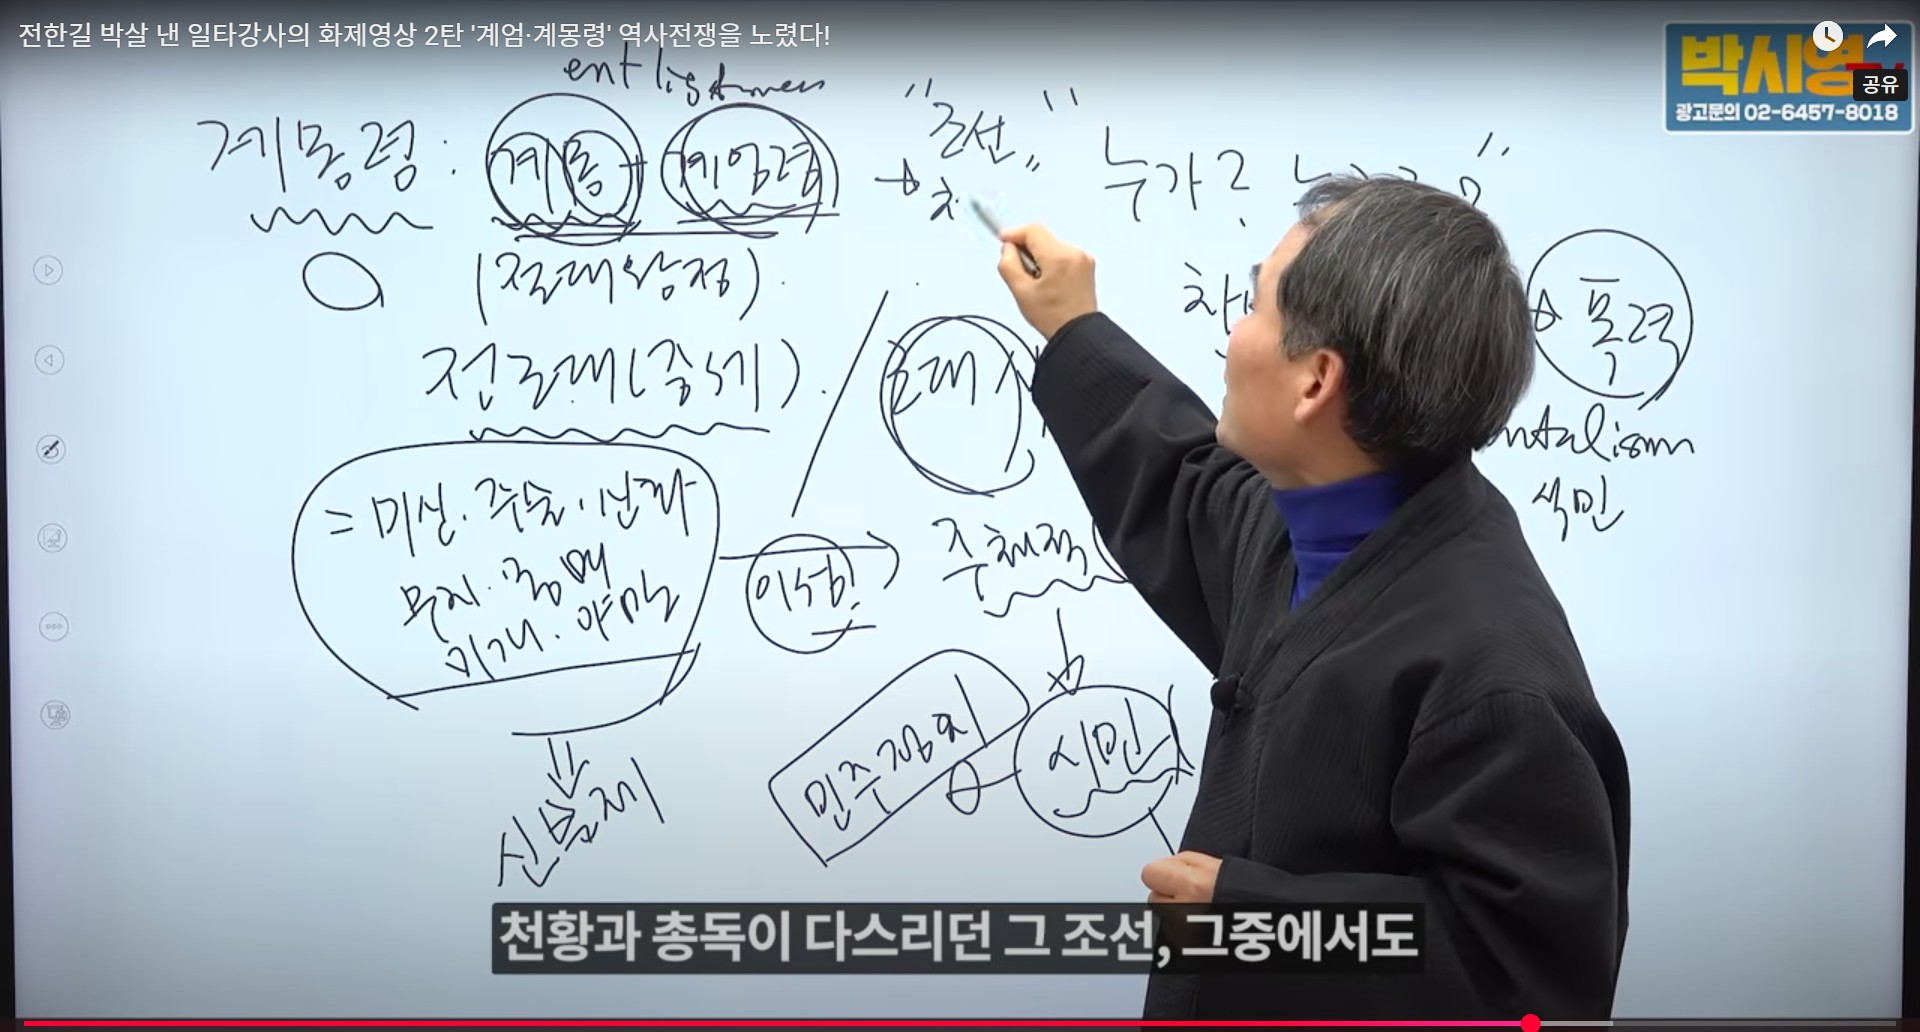 전한길 박살 낸 일타강사의 화제영상 2탄 '계엄·계몽령' 역사전쟁을 노렸다!
박시영
공유
광고문의 02-6457-8018
계몽령 : 계몽 + 계엄령
"조선" 누가?
(절대왕정)
전근대(중세).
근대
폭력
= 미신. 주술.
무지. 몽매
야만
이성!
주체적
식민
시민
민주정치
신분제
천황과 총독이 다스리던 그 조선, 그중에서도